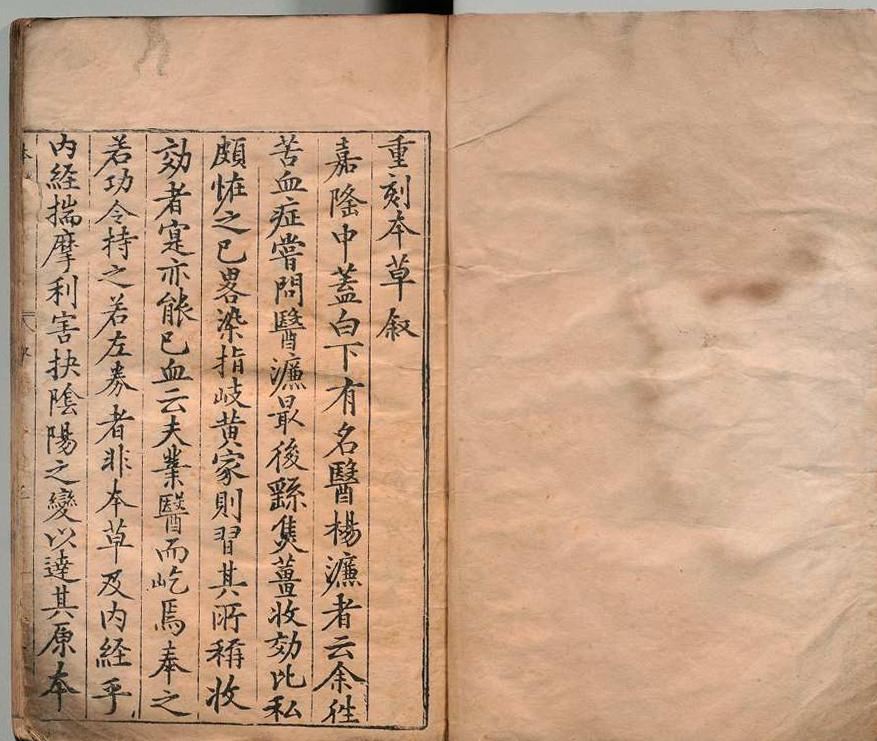 重刻本草叙
嘉隆中蓋白下有名醫楊濂者云余往
苦血症嘗問醫濂最後繇隻薑收效比私
頗怪之已畧染指岐黄家則習其所稱收
効者寔亦能已血云夫業醫而屹焉奉之
若功令持之若左券者非本草及内經乎
内経揣摩利害抉陰陽之變以達其原本